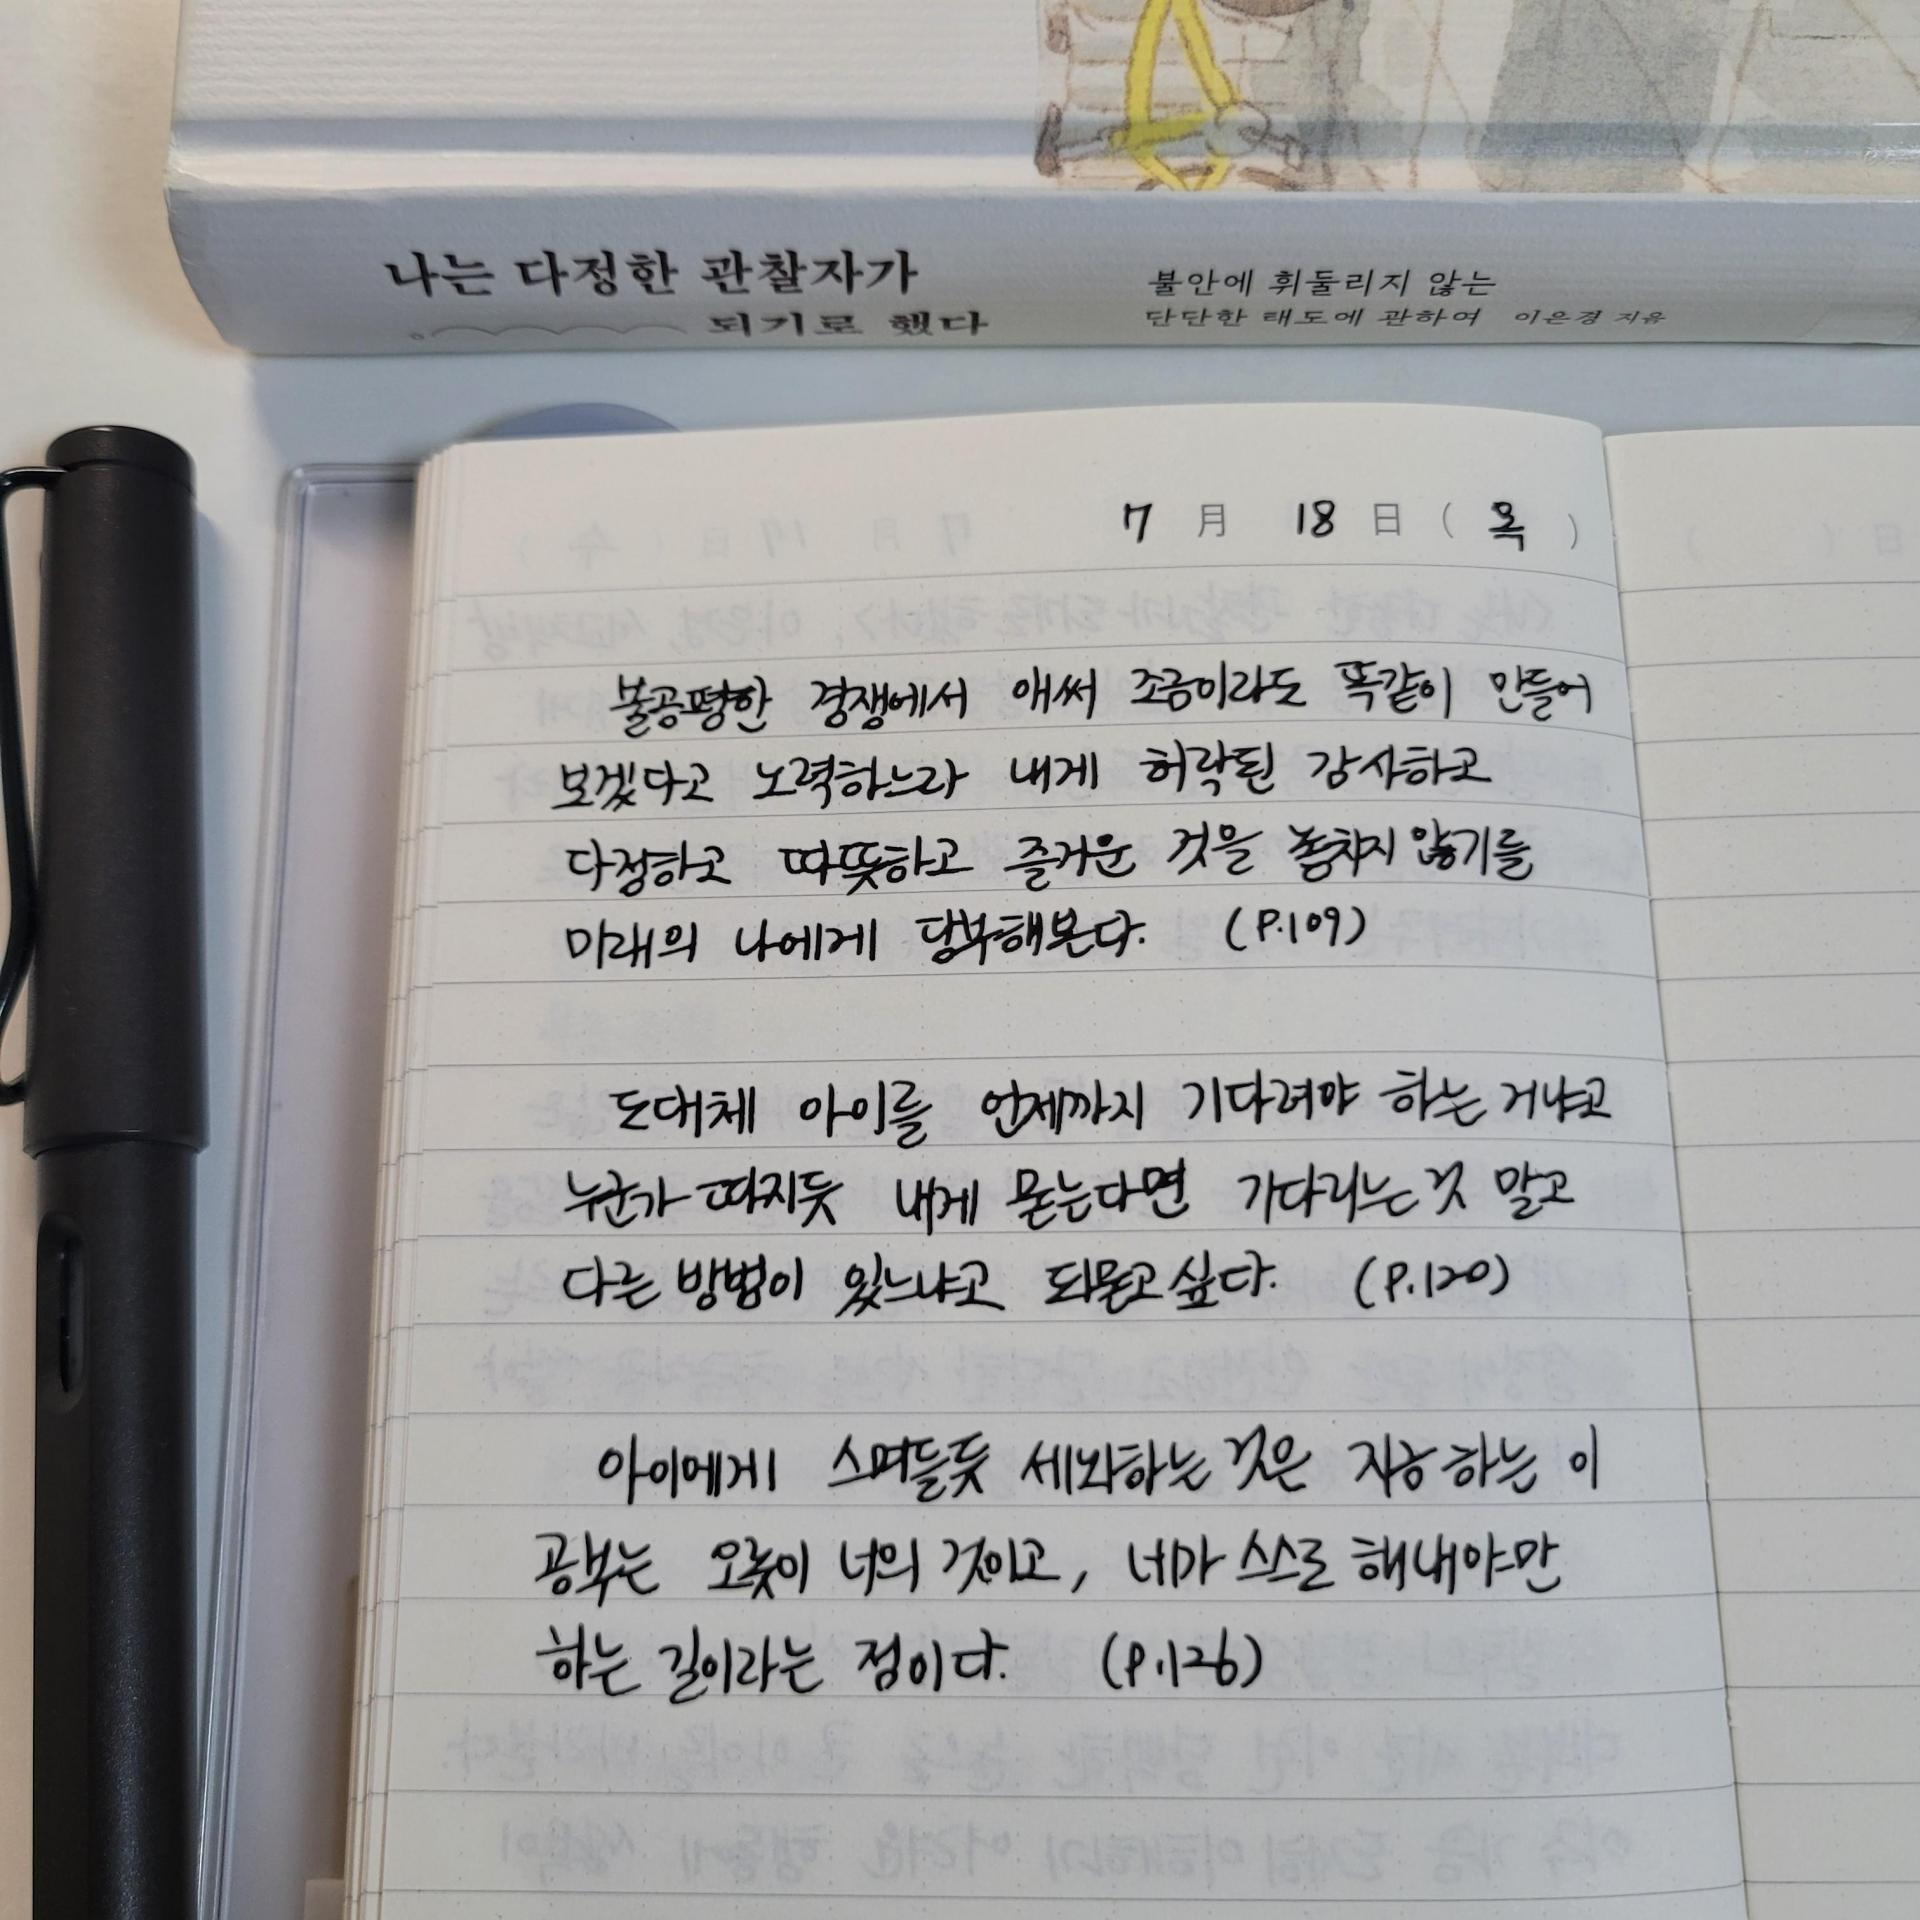 나는 다정한 관찰자가
되기로 했다
불안에 휘둘리지 않는
단단한 태도에 관하여 이은경 지음
7 月 18 日 ( 목 )
불공평한 경쟁에서 애써 조금이라도 똑같이 만들어
보겠다고 노력하느라 내게 허락된 감사하고
다정하고 따뜻하고 즐거운 것을 놓치지 않기를
미래의 나에게 당부해본다. (P.109)
도대체 아이를 언제까지 기다려야 하는 거냐고
누군가 따지듯 내게 묻는다면 기다리는 것 말고
다른 방법이 있느냐고 되묻고 싶다. (P.120)
아이에게 스며들듯 세뇌하는 것은 지능하는 이
공부는 오롯이 너의 것이고, 네가 스스로 해내야만
하는 길이라는 점이다. (P.126)